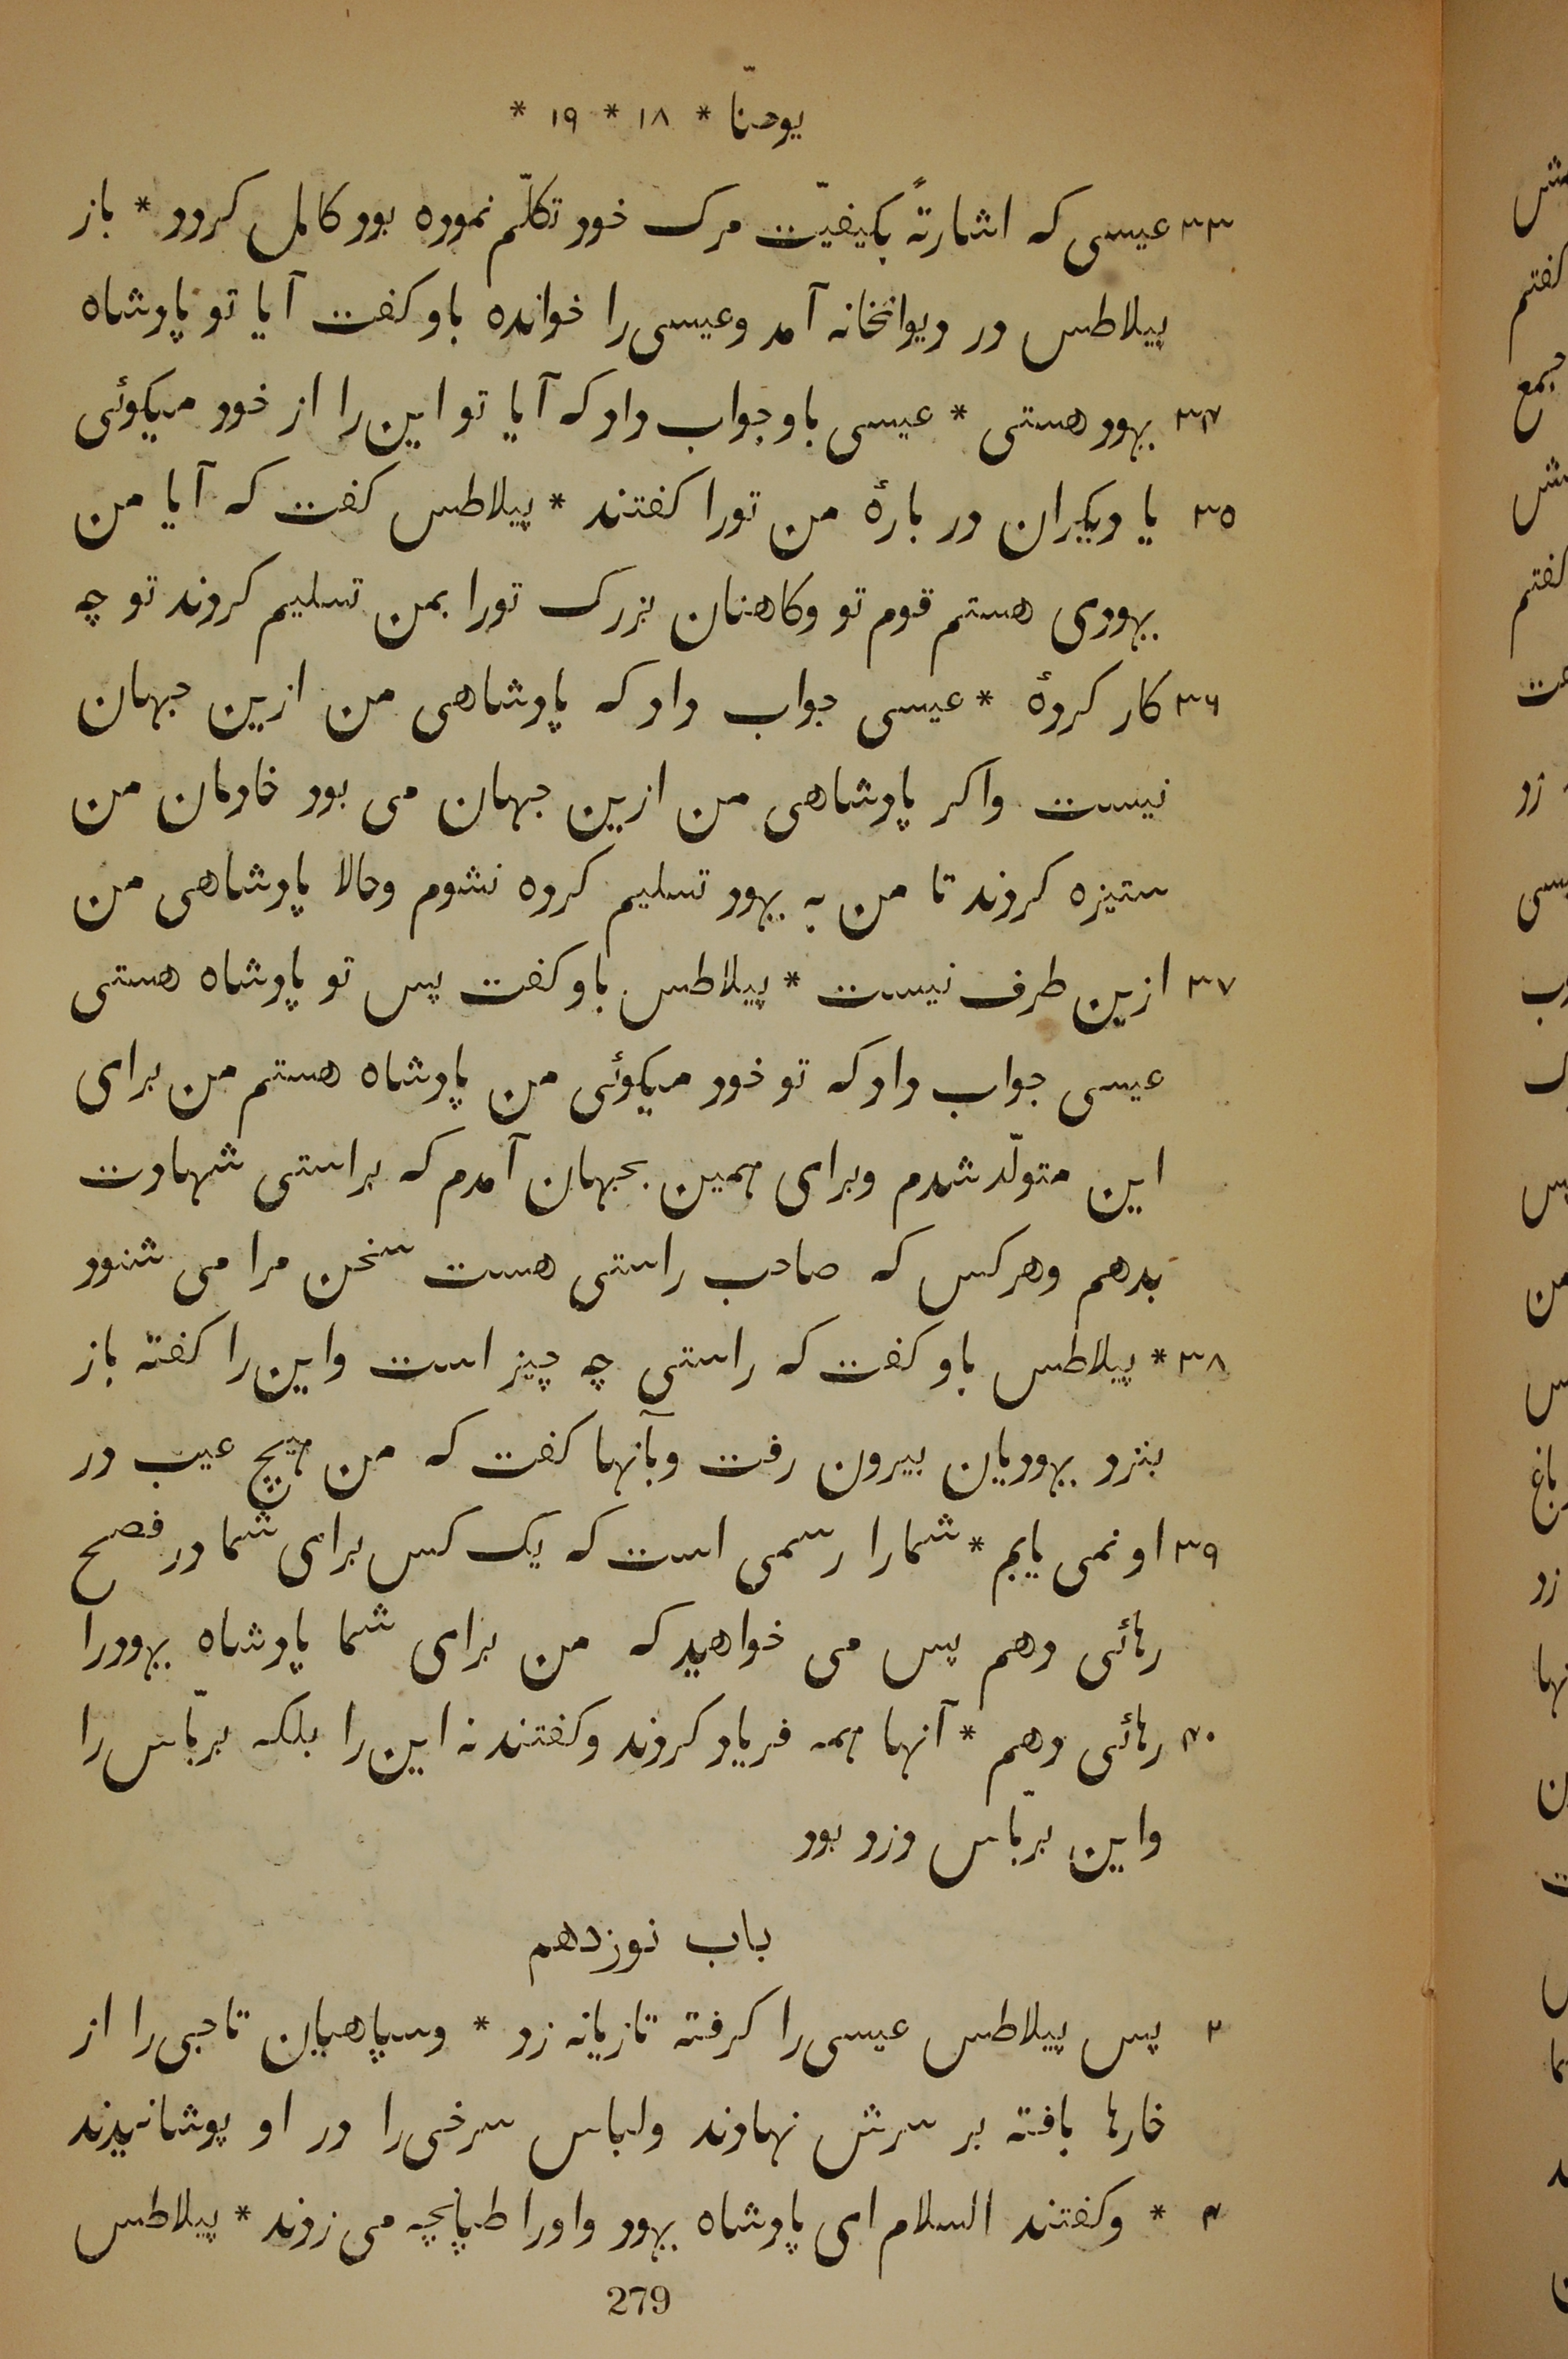 یوحنّا * ۱۸ * ۱۹ *
۳۳ عیسی که اشارتهً بکیفیّت مرک خود تکلّم نموده بود کامل کردد * باز
پیلاطس در دیوانخانه آمد وعیسی را خوانده باو کفت آیا تو پادشاه
۳۴ یهود هستی * عیسی باو جواب داد که آیا تو این را از خود میکوئی
۳۵ یا دیکران در بارهٔ من تورا کفتند * پیلاطس کفت که آیا من
یهودی هستم قوم تو وکاهنان بزرک تورا بمن تسلیم کردند تو چه
۳۶ کار کردهٔ * عیسی جواب داد که پادشاهی من ازین جهان
نیست واکر پادشاهی من ازین جهان می بود خادمان من
ستیزه کردند تا من به یهود تسلیم کرده نشوم وحالا پادشاهی من
۳۷ ازین طرف نیست * پیلاطس باو کفت پس تو پادشاه هستی
عیسی جواب داد که تو خود میکوئی من پادشاه هستم من برای
این متولّد شدم وبرای همین بجهان آمدم که براستی شهادت
بدهم وهر کس که صاحب راستی هست سخن مرا می شنود
۳۸ * پیلاطس باو کفت که راستی چه چیز است واین را کفته باز
بنزد یهودیان بیرون رفت وبآنها کفت که من هیچ عیب در
۳۹ او نمی یابم * شمارا رسمی است که یک کس برای شما در فصح
رهائی دهم پس می خواهید که من برای شما پادشاه یهودرا
۴۰ رهائی دهم * آنها همه فریاد کردند وکفتند نه این را بلکه بربّاس را
واین بربّاس دزد بود
باب نوزدهم
۲ پس پیلاطس عیسی را کرفته تازیانه زد * وسپاهیان تاجی را از
خارها بافته بر سرش نهادند ولباس سرخی را در او پوشانیدند
۴ * وکفتند السلام ای پادشاه یهود واورا طپانچه می زدند * پیلاطس
279